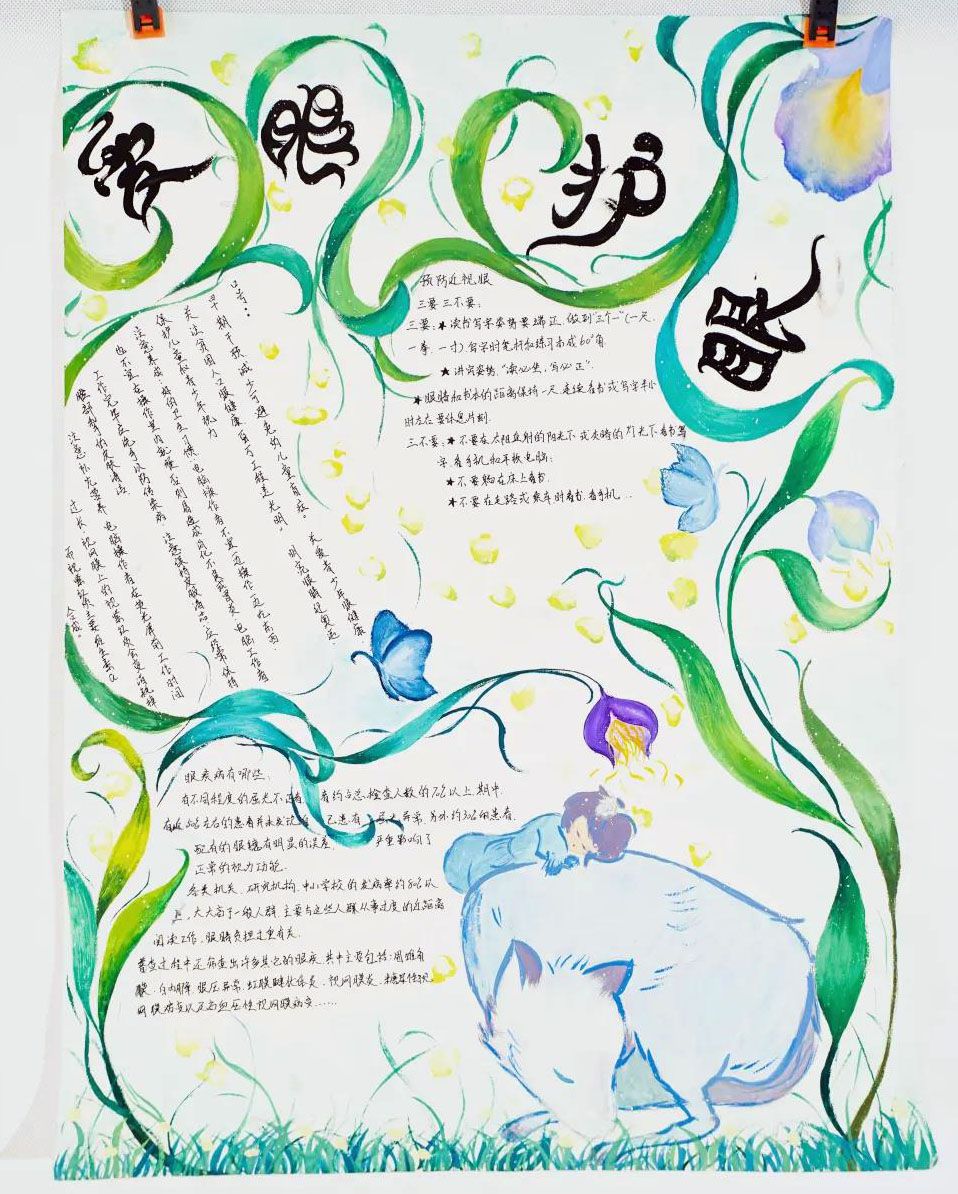 爱眼护眼
预防近视眼
三要三不要：
三要：★读书写字姿势要端正，做到"三个一"(一尺、
一拳、一寸)写字时笔杆和练习本成60°角.
★讲究姿势，"读必坐，写必正".
★眼睛和书本的距离保持一尺，连续看书或写字半小
时左右要休息片刻.
三不要：★不要在太阳直射的阳光下或灰暗的灯光下看书写
字、看手机和平板电脑；
★不要躺在床上看书.
★不要在走路或乘车时看书、看手机...
口号：
早期干预减少可避免的儿童盲症。 关爱青少年眼健康
关注贫困人口眼健康，百万工程送光明。 明亮眼睛迎奥运
保护儿童和青少年视力
注意养成良好的卫生习惯，电脑操作者不宜一边操作一边吃东西，
也不宜在操作室内就餐，否则易造成消化不良或胃炎，电脑工作者
工作完毕应洗手以防传染病 注意保持皮肤清洁，应经常保持
脸部和手的皮肤清洁
注意补充营养，电脑操作者在荧光屏前工作时间
过长，视网膜上的视紫红质会被消耗掉
而视紫红质主要由维生素A
合成。
眼疾病有哪些：
有不同程度的屈光不正者，约占总检查人数的 以上，期中
有 左右的患者并未发现 己患有 屈光异常，另外约 的患者，
配有的眼镜有明显的误差， 严重影响了
正常的视力功能.
各类机关、研究机构、中小学校的发病率约80%以
上，大大高于一般人群，主要与这些人群从事过度的近距离
阅读工作，眼睛负担过重有关.
普查过程中还筛查出许多其它的眼疾，其中主要包括：
白内障、眼压异常、虹膜睫状体炎、视网膜炎、糖尿性视
网膜病变以及高血压性视网膜病变……